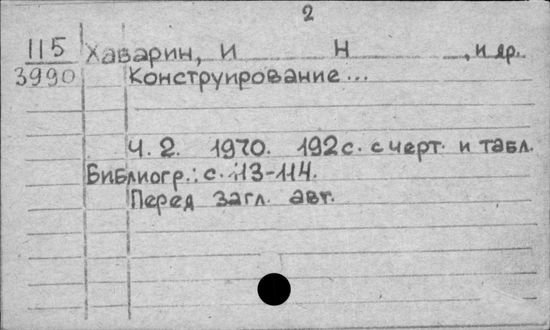 2
115 Хаварин, И Н , и др.
3990 Конструирование...
Ч. 2. 1970. 192 с. с черт. и табл.
Библиогр.: с. 113-114.
Перед загл. авт.